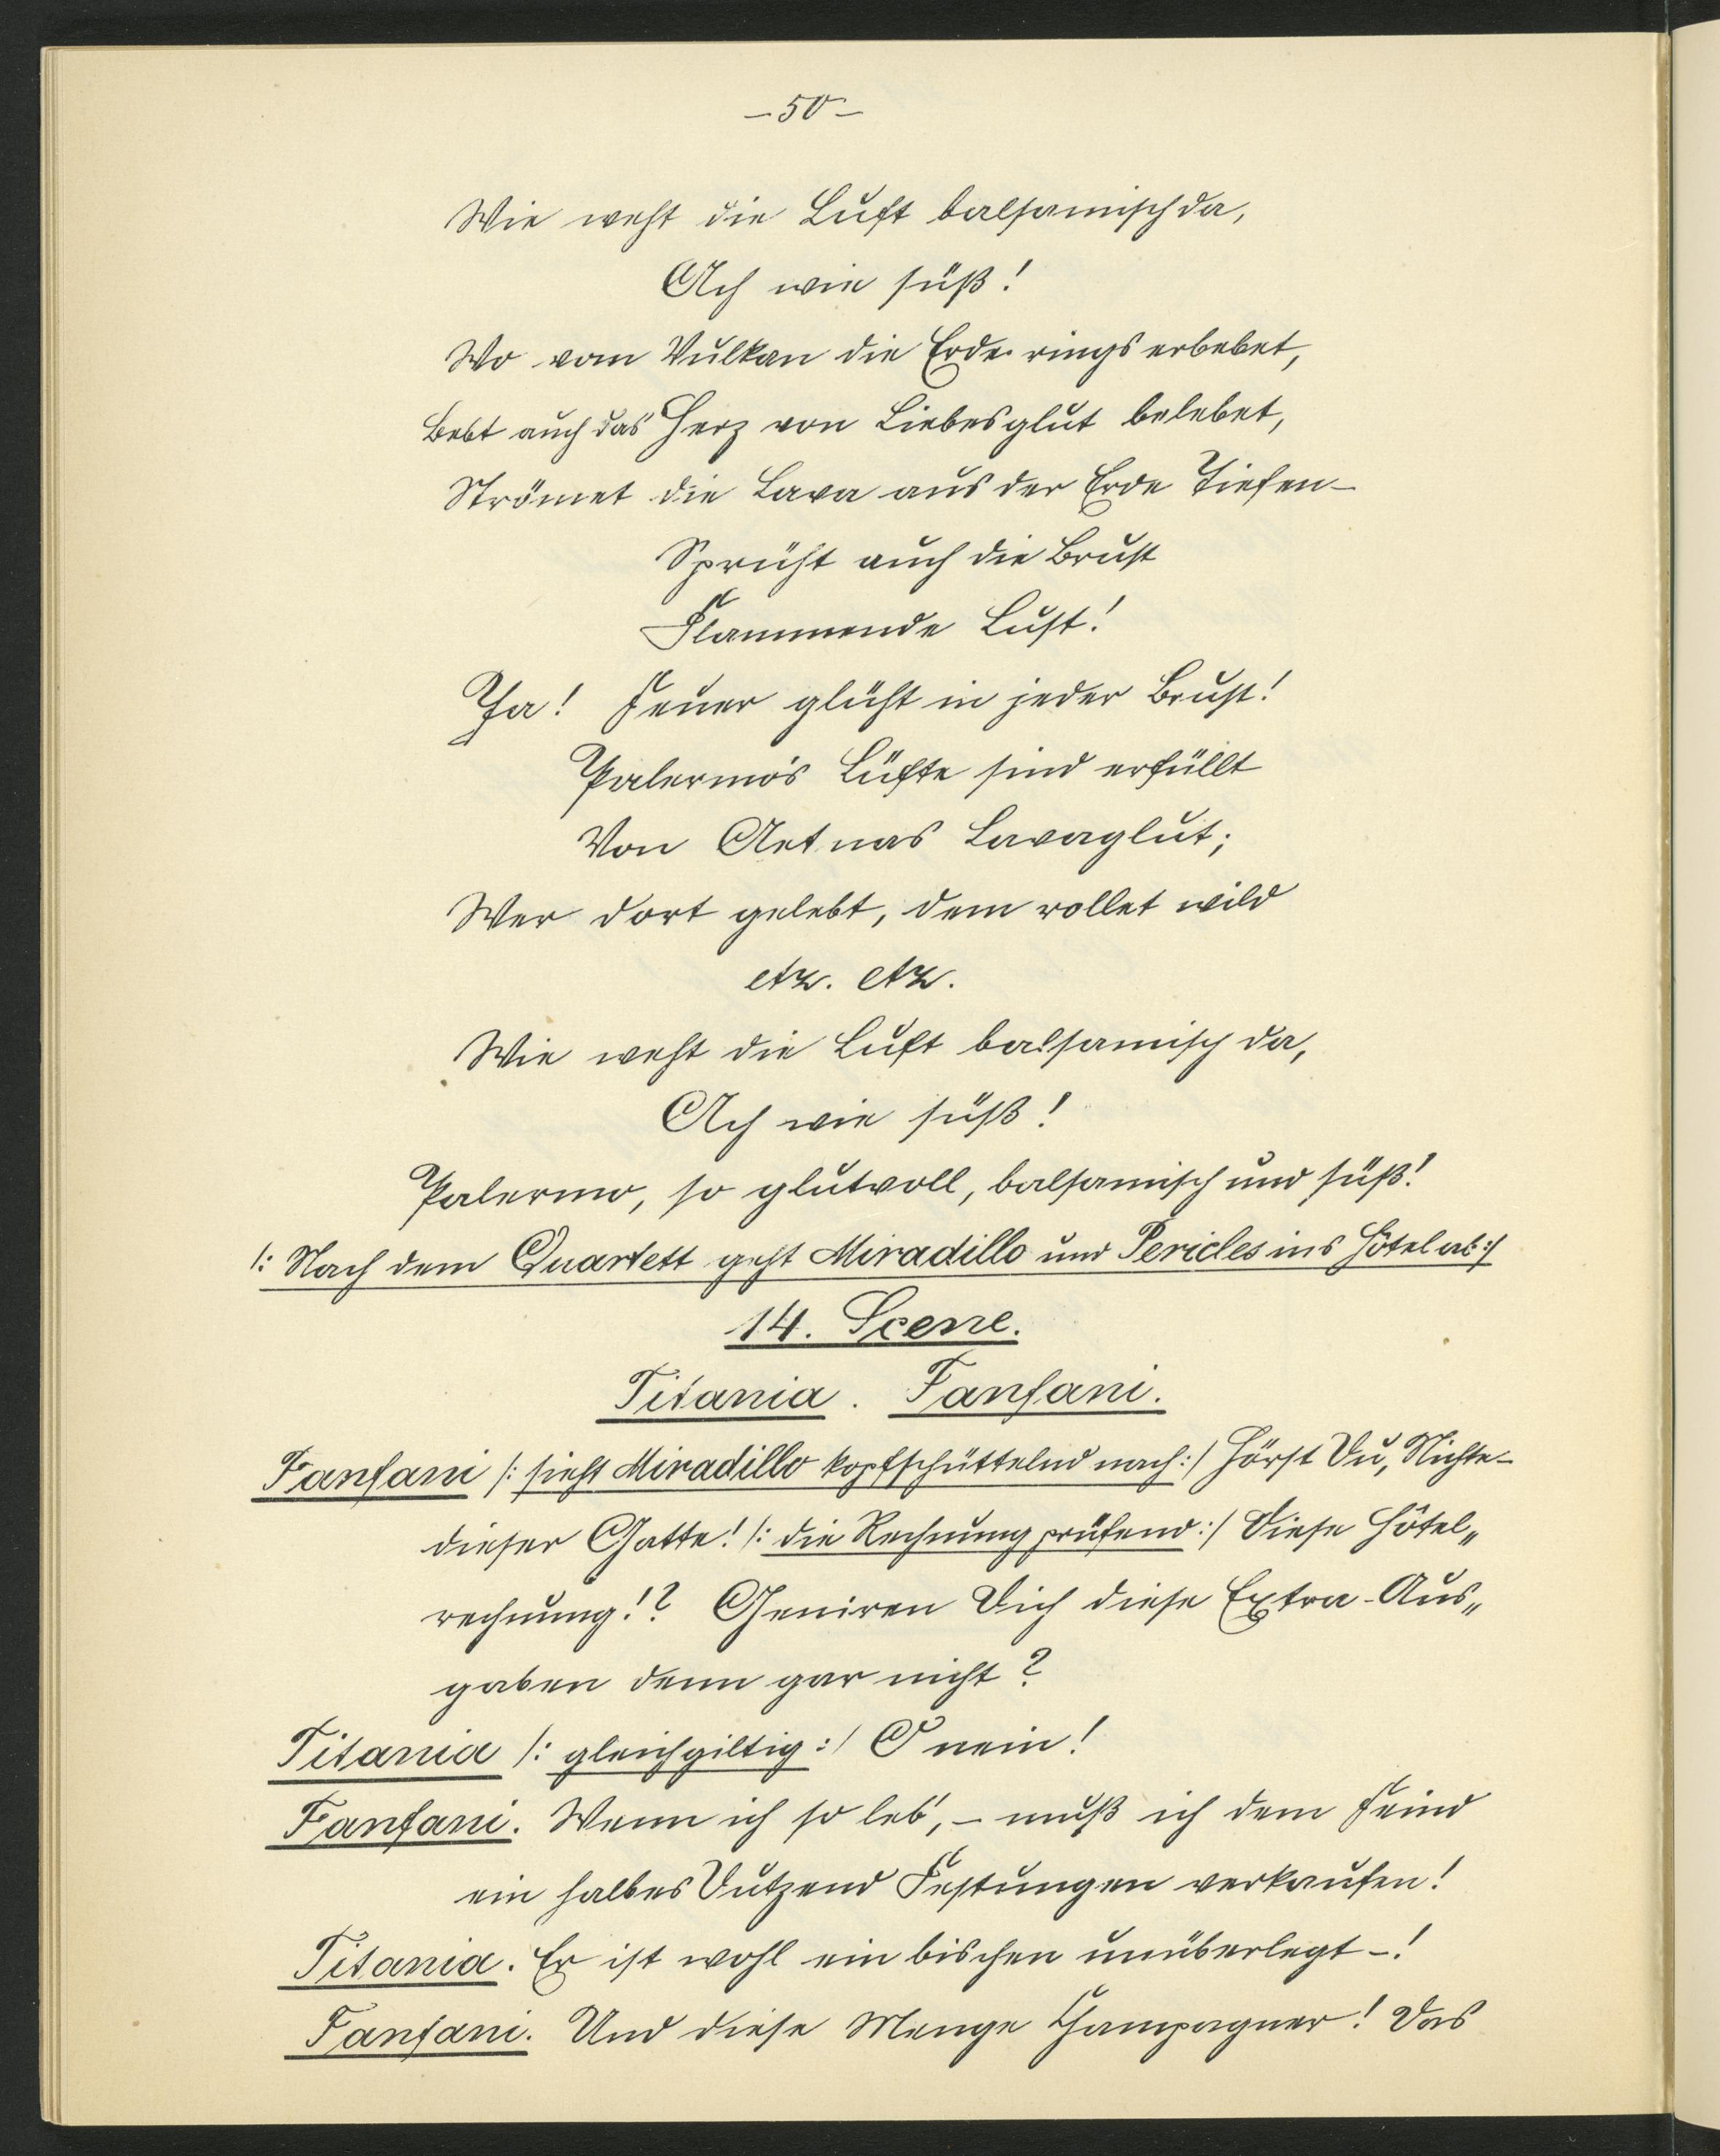 -50-
Wie weht die Luft balsamisch da,
Ach wie süß!
Wo vom Vulkan die Erde rings erbebet,
Bebt auch das Herz von Liebesglut belebet,
Strömet die Lava aus der Erde Tiefen-
Sprüht auch die Brust
Flammende Lust!
Ja! Feuer glüht in jeder Brust!
Palermo's Lüfte sind erfüllt
Von Aetnas Lavaglut;
Wer dort gelebt, dem rollet wild
etz. etz.
Wie weht die Luft balsamisch da,
Ach wie süß!
Palermo, so glutvoll, balsamisch und süß!
/: Nach dem Quartett geht Miradillo und Pericles ins Hôtel ab:/
14. Scene.
Titania. Fanfani.
Fanfani /: sieht Miradillo kopfschüttelnd nach:/ Hörst Du, Nichte-
dieser Gatte! /: die Rechnung prüfend:/ Diese Hôtel„
rechnung!? Geniren Dich diese Extra-Aus„
gaben denn gar nicht?
Titania /: gleichgiltig:/ O nein!
Fanfani. Wenn ich so leb', - muß ich dem Feind
ein halbes Dutzend Festungen verkaufen!
Titania. Er ist wohl ein bischen unüberlegt -!
Fanfani. Und diese Menge Champagner! Das